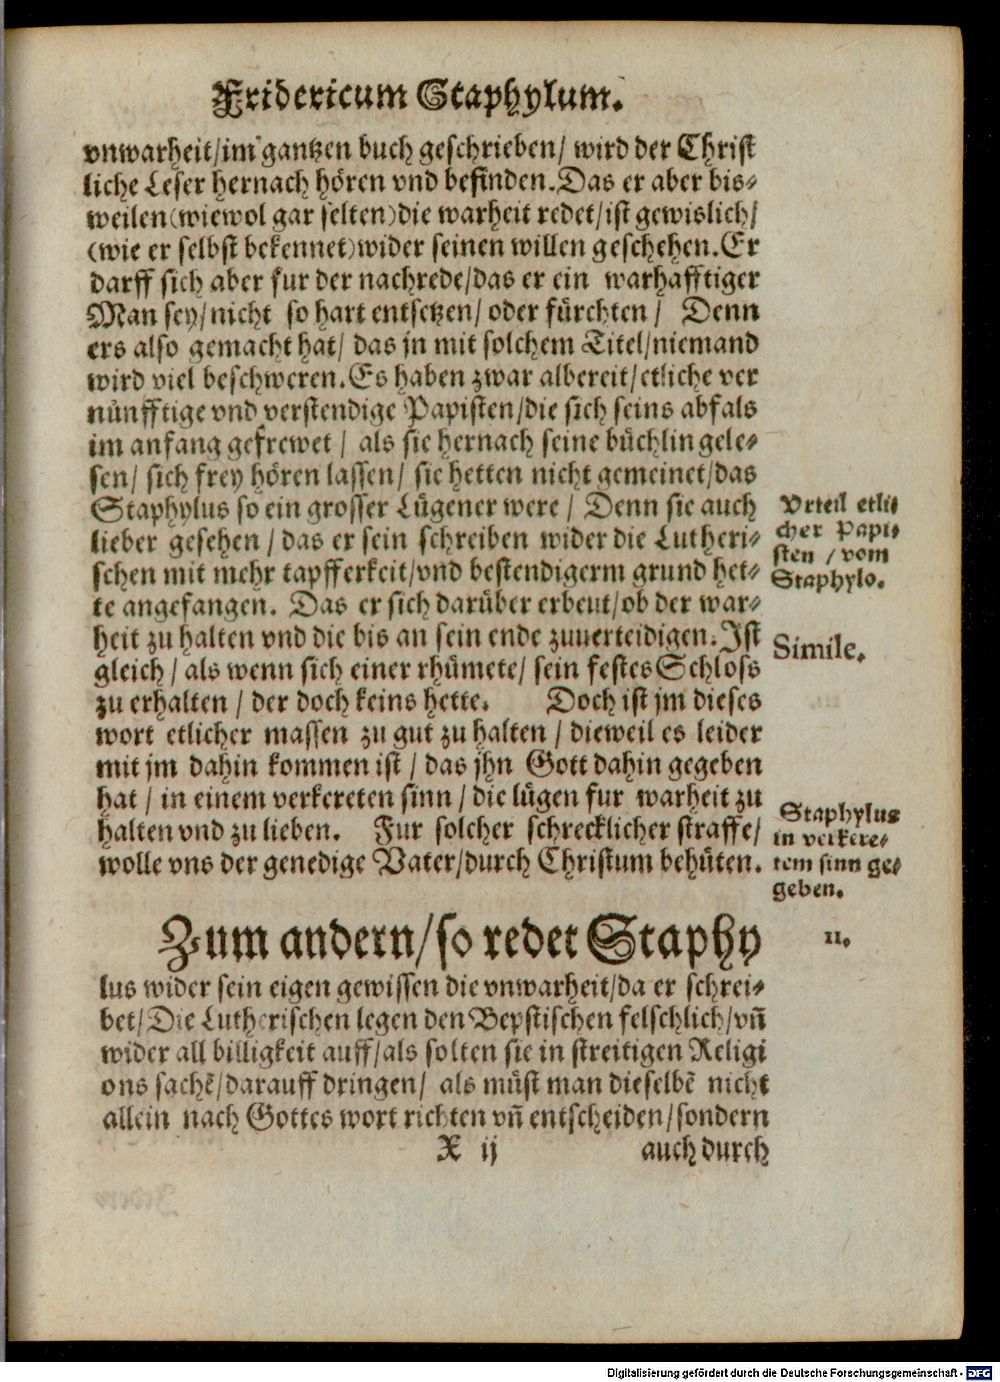 Fridericum Staphylum.
vnwarheit/im gantzen buch geschrieben/ wird der Christ
liche Leser hernach hören vnd befinden. Das er aber bis-
weilen (wiewol gar selten) die warheit redet/ist gewislich/
(wie er selbst bekennet) wider seinen willen geschehen. Er
darff sich aber fur der nachrede/das er ein warhafftiger
Man sey/nicht so hart entsetzen/ oder fürchten/ Denn
ers also gemacht hat/ das jn mit solchem Titel/niemand
wird viel beschweren. Es haben zwar albereit/etliche ver
nünfftige vnd verstendige Papisten/die sich seins abfals
im anfang gefrewet / als sie hernach seine büchlin gele-
sen/ sich frey hören lassen/ sie hetten nicht gemeinet/das
Staphylus so ein grosser Lügener were / Denn sie auch
lieber gesehen / das er sein schreiben wider die Lutheri-
schen mit mehr tapfferkeit/vnd bestendigerm grund het-
te angefangen. Das er sich darüber erbeut/ob der war-
heit zu halten vnd die bis an sein ende zuuerteidigen. Ist
gleich / als wenn sich einer rhümete/ sein festes Schloss
zu erhalten / der doch keins hette. Doch ist jm dieses
wort etlicher massen zu gut zu halten / dieweil es leider
mit jm dahin kommen ist / das jhn Gott dahin gegeben
hat / in einem verkereten sinn / die lügen fur warheit zu
halten vnd zu lieben. Fur solcher schrecklicher straffe/
wolle vns der genedige Vater/durch Christum behüten.
Vrteil etli-
cher Papi-
sten / vom
Staphylo.
Simile.
Staphylus
in verkere-
tem sinn ge-
geben.
Zum andern/so redet Staphy
lus wider sein eigen gewissen die vnwarheit/da er schrei-
bet/Die Lutherischen legen den Bepstischen felschlich/vñ
wider all billigkeit auff/als solten sie in streitigen Religi
ons sachẽ/darauff dringen/ als müst man dieselbẽ nicht
allein nach Gottes wort richten vñ entscheiden/sondern
11.
X ij
auch durch
Digitalisierung gefördert durch die Deutsche Forschungsgemeinschaft - DFG